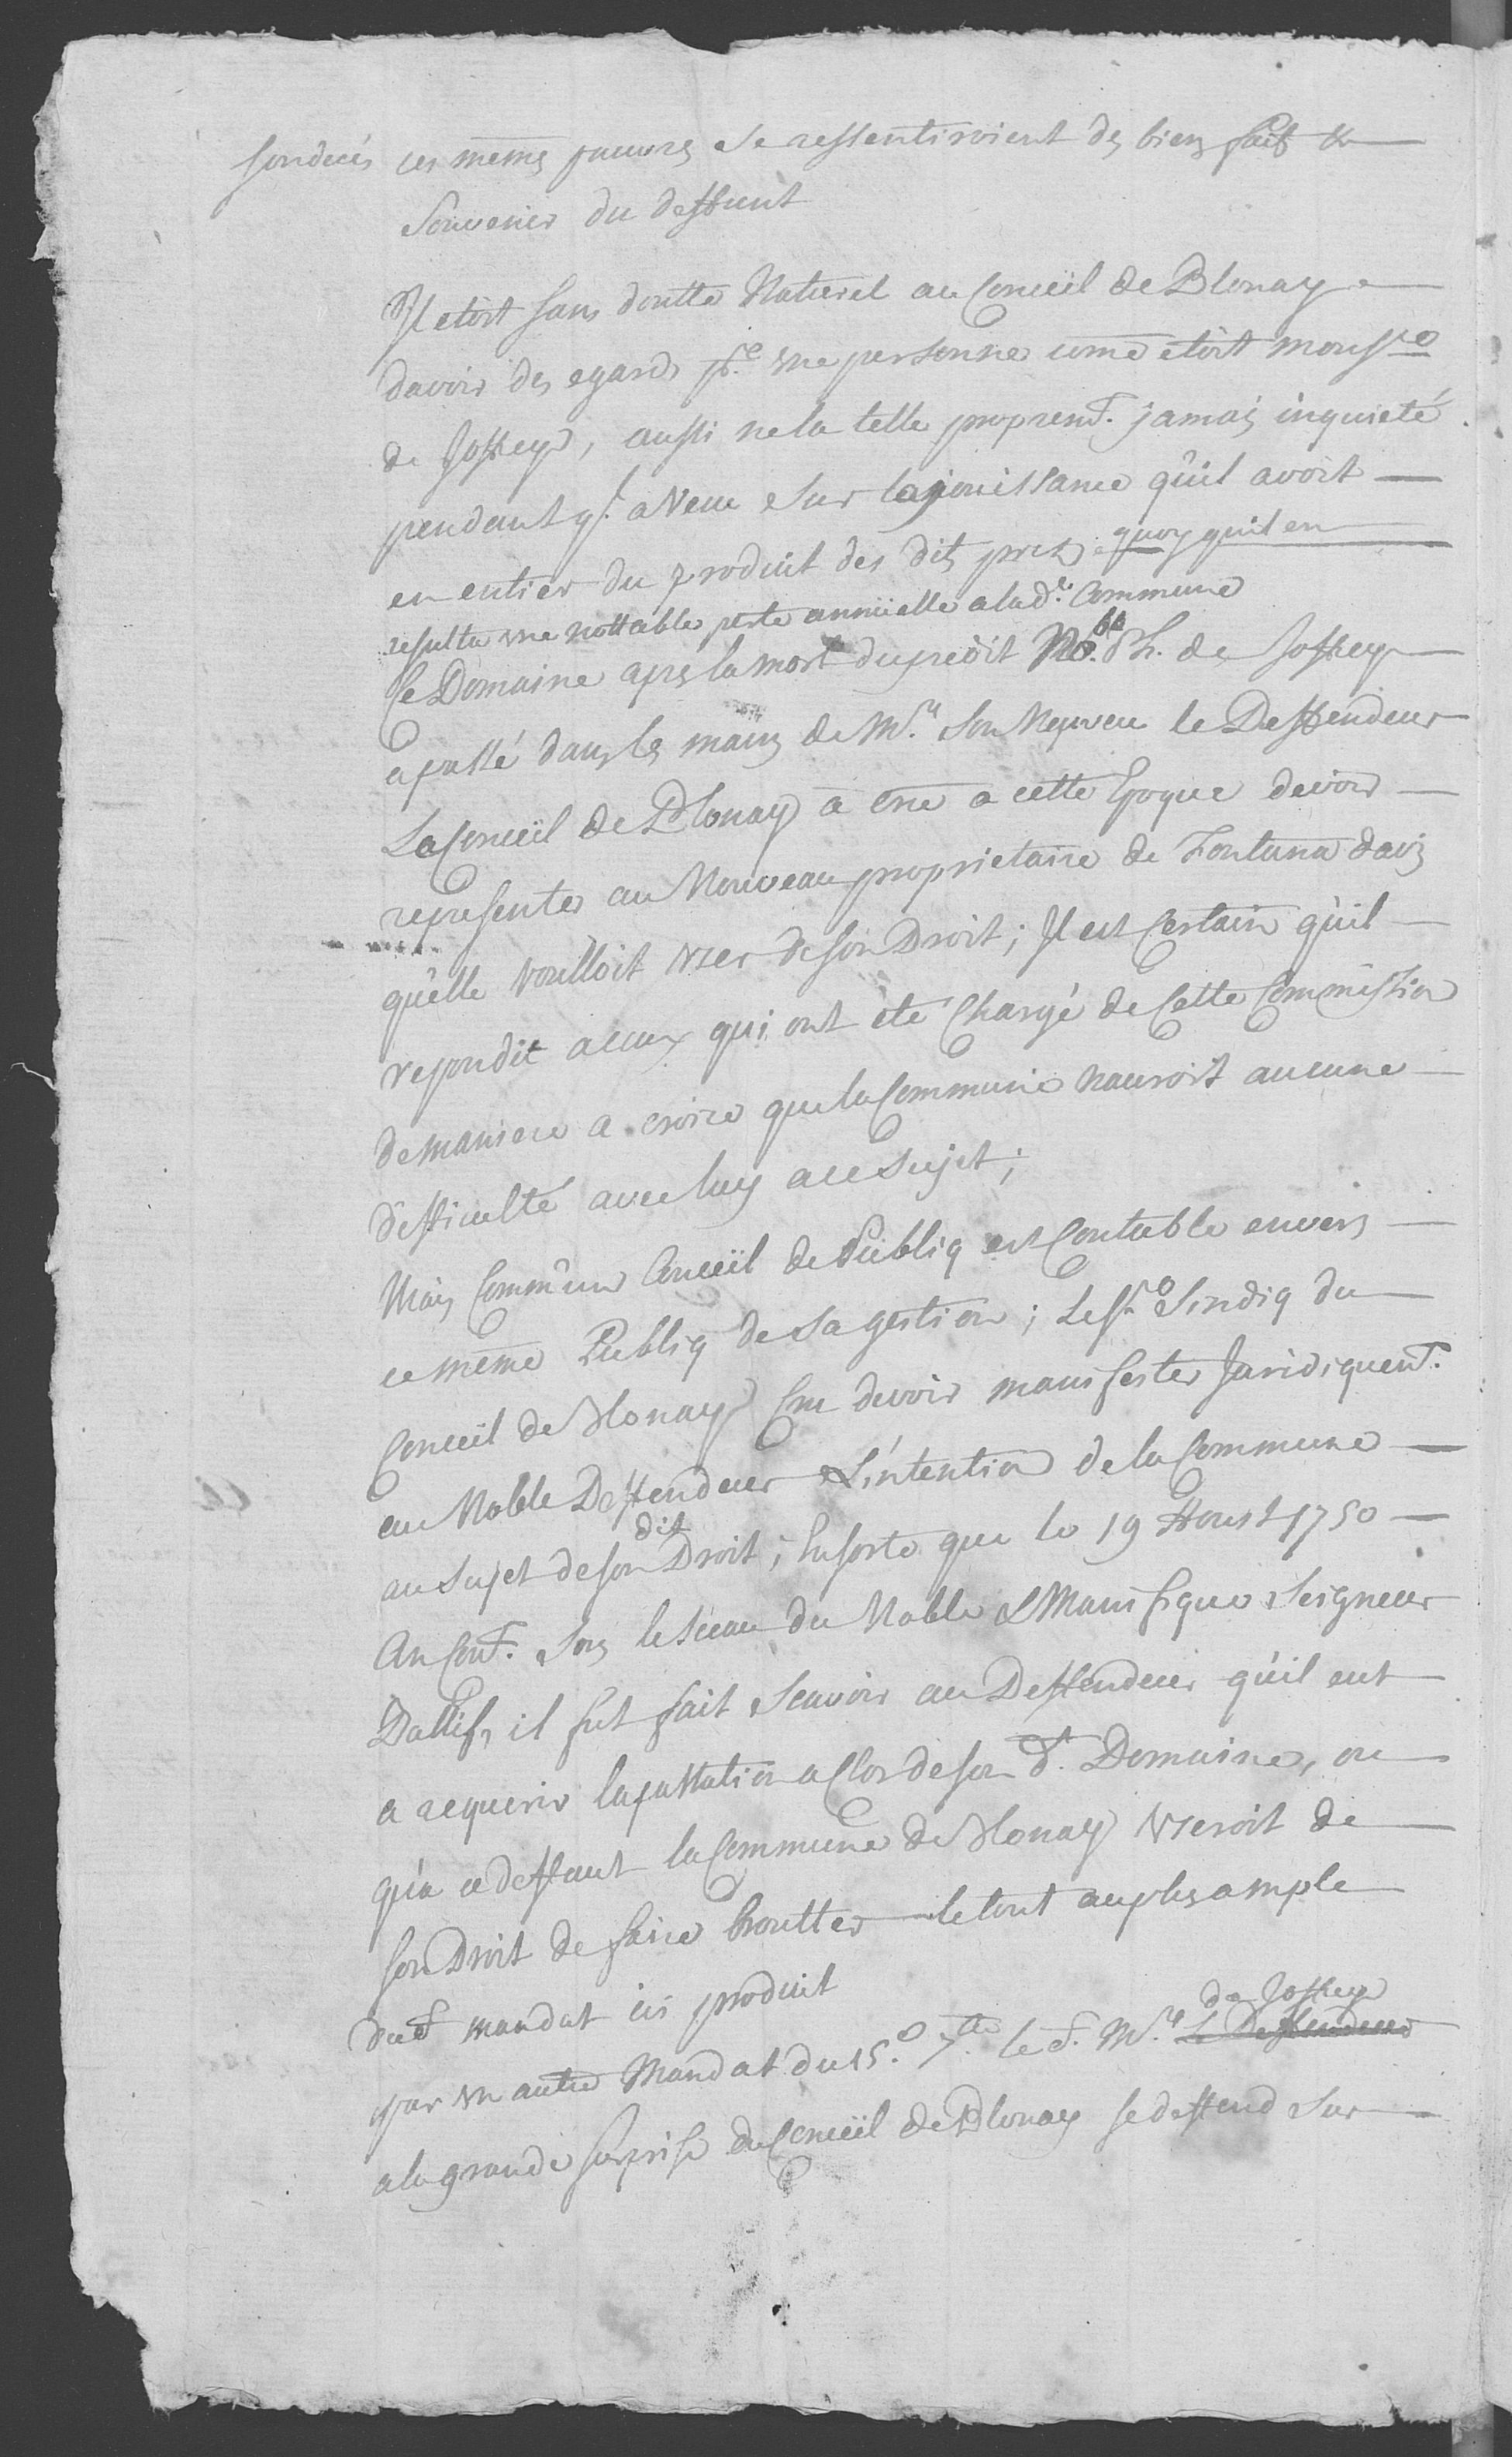 son deces ces meme pauvres se ressentiroient des bien fait &
Souvenir du deffunt
Il etoit sans doutte Naturel au Conceil de Blonay
davoir des egards pr. une personne come etoit monsr.
de Joffrey, aussi ne la telle proprent. jamais inquieté
pendant q'l a Vecu sur la jouissance qu'il avoit
en entier du produit des dits prez, quoy quil en
resulta une nottable perte annüelle a lad.e Commune
Ce Domaine apres la mort du predit No.ble Ph. de Joffrey
a passé dans les mains de Mr. Son Neveu le Deffendeur
Le Conceil de Blonay a crue a cette Epoque devoir
representer au Nouveau proprietaire de Fontana davis
qu'elle voulloit User de son Droit; Il est Certain qu'il
repondit a ceux qui ont eté Chargé de Cette Commission
de maniere a croire que la Commune nauroit aucune
difficulté avec luy a ce sujet;
Mais Comm'un Conceil de Publiq est Contable envers
ce meme Publiq de sa gestion; Le Sr. Sindiq du
Conceil de Blonay Cru devoir manifester Juridiquent.
au Noble Deffendeur L'intention de la Commune
au Sujet de son dit Droit; Ensorte que le 19 Aoust 1750
An Cout. sous le sceau du Noble & Manifique Seigneur
Ballif, il fut fait Scavoir au Deffendeur qu'il eut
a requerir la passation a Clos de son dt. Domaine, ou
qu'a ce deffaut la Commune de Blonay Useroit de
son Droit de faire broutter le tout au plus ample
dud mandat ici produit
par un autre Mandat du 15.o 7.bre le d. Mr. Le Deffendeur de Joffrey
a la grande surprise du Conceil de Blonay se deffend sur